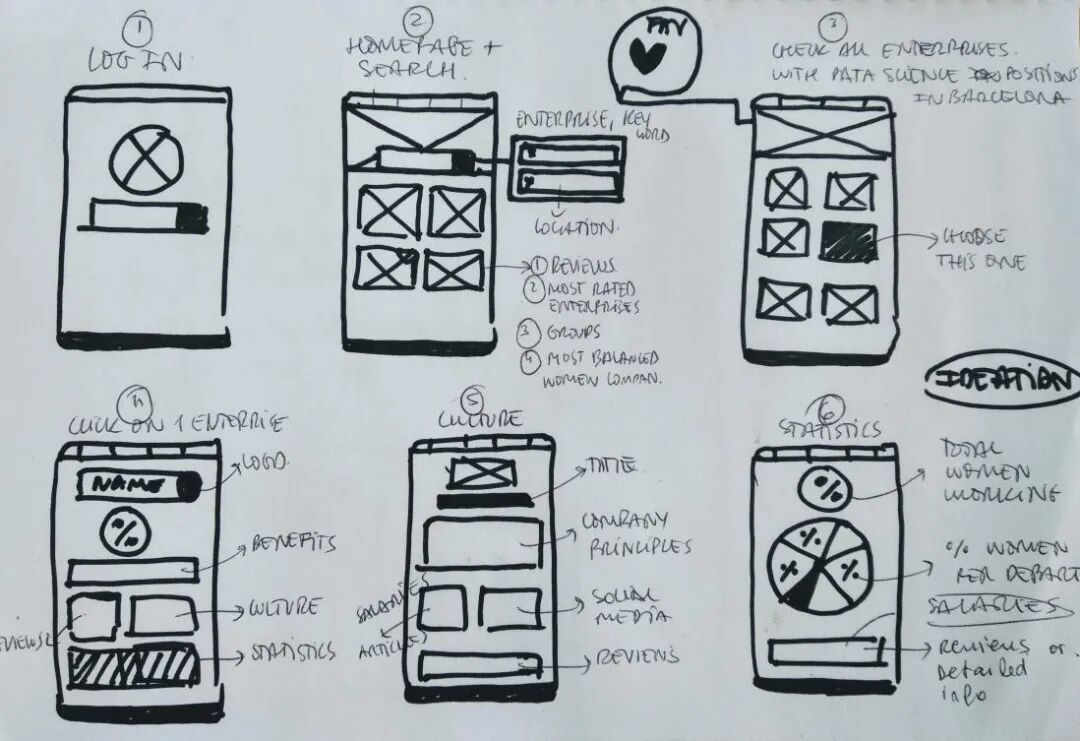 1
LOG IN
2
HOMEPAGE +
SEARCH.
ENTERPRISE, KEY
WORD
LOCATION.
1 REVIEWS
2 MOST RATED
ENTERPRISES
3 GROUPS
4 MOST BALANCED
WOMEN COMPAN.
FAV
3
CHECK ALL ENTERPRISES.
WITH DATA SCIENCE POSITIONS
IN BARCELONA
CHOOSE
THIS ONE
IDEATION
4
CLICK ON 1 ENTERPRISE
NAME
LOGO.
%
BENEFITS
CULTURE
STATISTICS
5
CULTURE
TITLE
COMPANY
PRINCIPLES
SALARIES
ARTICLES
SOCIAL
MEDIA
REVIEWS
6
STATISTICS
%
TOTAL
WOMEN
WORKING
%
%
%
% WOMEN
PER DEPART
SALARIES
REVIEWS OR
Detailed
info